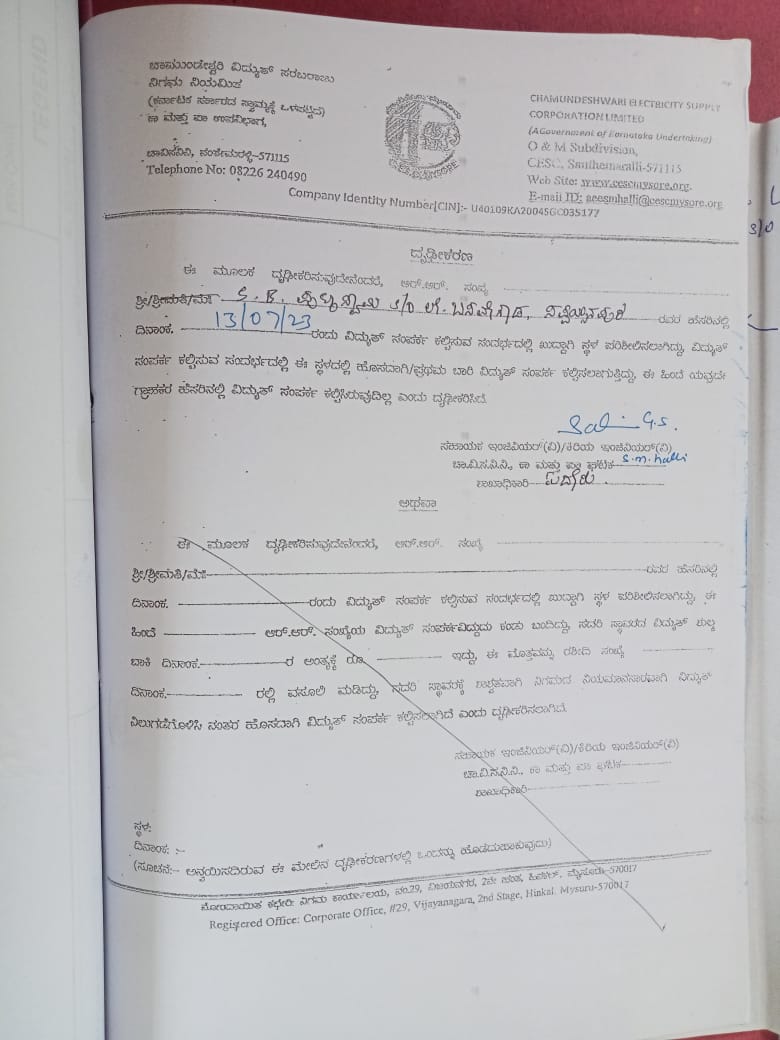 ಚಾಮುಂಡೇಶ್ವರಿ ವಿದ್ಯುತ್ ಸರಬರಾಜು
ನಿಗಮ ನಿಯಮಿತ
(ಕರ್ನಾಟಕ ಸರ್ಕಾರದ ಸ್ವಾಮ್ಯಕ್ಕೆ ಒಳಪಟ್ಟಿದೆ)
ಕಾ ಮತ್ತು ಪಾ ಉಪವಿಭಾಗ,
ಚಾವಿಸನಿನಿ, ಸಂತೇಮರಳ್ಳಿ-571115
Telephone No: 08226 240490
CHAMUNDESHWARI ELECTRICITY SUPPLY
CORPORATION LIMITED
(AGovernment of Karnataka Undertaking)
O & M Subdivision,
CESC, Santhemaralli-571115
Web Site: www.cescmysore.org.
E-mail ID: aeesmhalli@cescmysore.org
Company Identity Number[CIN]:- U40109KA2004SGC035177
ದೃಢೀಕರಣ
ಈ ಮೂಲಕ ದೃಢೀಕರಿಸುವುದೇನೆಂದರೆ, ಆರ್.ಆರ್. ಸಂಖ್ಯೆ
ಶ್ರೀ/ಶ್ರೀಮತಿ/ಮೆ: S.B. S/O ಲೇ. ರವರ ಹೆಸರಿನಲ್ಲಿ
ದಿನಾಂಕ. 13/07/23 ರಂದು ವಿದ್ಯುತ್ ಸಂಪರ್ಕ ಕಲ್ಪಿಸುವ ಸಂದರ್ಭದಲ್ಲಿ ಖುದ್ದಾಗಿ ಸ್ಥಳ ಪರಿಶೀಲಿಸಲಾಗಿದ್ದು, ವಿದ್ಯುತ್
ಸಂಪರ್ಕ ಕಲ್ಪಿಸುವ ಸಂದರ್ಭದಲ್ಲಿ ಈ ಸ್ಥಳದಲ್ಲಿ ಹೊಸದಾಗಿ/ಪ್ರಥಮ ಬಾರಿ ವಿದ್ಯುತ್ ಸಂಪರ್ಕ ಕಲ್ಪಿಸಲಾಗುತ್ತಿದ್ದು, ಈ ಹಿಂದೆ ಯಾವುದೇ
ಗ್ರಾಹಕರ ಹೆಸರಿನಲ್ಲಿ ವಿದ್ಯುತ್ ಸಂಪರ್ಕ ಕಲ್ಪಿಸಿರುವುದಿಲ್ಲ ಎಂದು ದೃಢೀಕರಿಸಿದೆ.
ಸಹಾಯಕ ಇಂಜಿನಿಯರ್(ವಿ)/ಕಿರಿಯ ಇಂಜಿನಿಯರ್(ವಿ)
ಚಾ.ವಿ.ಸ.ನಿ.ನಿ., ಕಾ ಮತ್ತು ಪಾ ಘಟಕ S.m.halli
ಶಾಖಾಧಿಕಾರಿ
ಅಥವಾ
ಈ ಮೂಲಕ ದೃಢೀಕರಿಸುವುದೇನೆಂದರೆ, ಆರ್.ಆರ್. ಸಂಖ್ಯೆ
ಶ್ರೀ/ಶ್ರೀಮತಿ/ಮೆ: ರವರ ಹೆಸರಿನಲ್ಲಿ
ದಿನಾಂಕ. ರಂದು ವಿದ್ಯುತ್ ಸಂಪರ್ಕ ಕಲ್ಪಿಸುವ ಸಂದರ್ಭದಲ್ಲಿ ಖುದ್ದಾಗಿ ಸ್ಥಳ ಪರಿಶೀಲಿಸಲಾಗಿದ್ದು, ಈ
ಹಿಂದೆ ಆರ್.ಆರ್. ಸಂಖ್ಯೆಯ ವಿದ್ಯುತ್ ಸಂಪರ್ಕವಿದ್ದುದು ಕಂಡು ಬಂದಿದ್ದು, ಸದರಿ ಸ್ಥಾವರದ ವಿದ್ಯುತ್ ಶುಲ್ಕ
ಬಾಕಿ ದಿನಾಂಕ. ರ ಅಂತ್ಯಕ್ಕೆ ರೂ. ಇದ್ದು, ಈ ಮೊತ್ತವನ್ನು ರಶೀದಿ ಸಂಖ್ಯೆ
ದಿನಾಂಕ. ರಲ್ಲಿ ವಸೂಲಿ ಮಾಡಿದ್ದು, ಸದರಿ ಸ್ಥಾವರಕ್ಕೆ ಶಾಶ್ವತವಾಗಿ ನಿಗಮದ ನಿಯಮಾನುಸಾರವಾಗಿ ವಿದ್ಯುತ್
ನಿಲುಗಡೆಗೊಳಿಸಿ ನಂತರ ಹೊಸದಾಗಿ ವಿದ್ಯುತ್ ಸಂಪರ್ಕ ಕಲ್ಪಿಸಲಾಗಿದೆ ಎಂದು ದೃಢೀಕರಿಸಲಾಗಿದೆ.
ಸಹಾಯಕ ಇಂಜಿನಿಯರ್(ವಿ)/ಕಿರಿಯ ಇಂಜಿನಿಯರ್(ವಿ)
ಚಾ.ವಿ.ಸ.ನಿ.ನಿ., ಕಾ ಮತ್ತು ಪಾ ಘಟಕ
ಶಾಖಾಧಿಕಾರಿ
ಸ್ಥಳ:
ದಿನಾಂಕ: :-
(ಸೂಚನೆ:- ಅನ್ವಯಿಸದಿರುವ ಈ ಮೇಲಿನ ದೃಢೀಕರಣಗಳಲ್ಲಿ ಒಂದನ್ನು ಹೊಡೆದುಹಾಕುವುದು)
ನೋಂದಾಯಿತ ಕಛೇರಿ: ನಿಗಮ ಕಾರ್ಯಾಲಯ, ನಂ.29, ವಿಜಯನಗರ, 2ನೇ ಹಂತ, ಹಿನಕಲ್, ಮೈಸೂರು-570017
Registered Office: Corporate Office, #29, Vijayanagara, 2nd Stage, Hinkal. Mysuru-570017